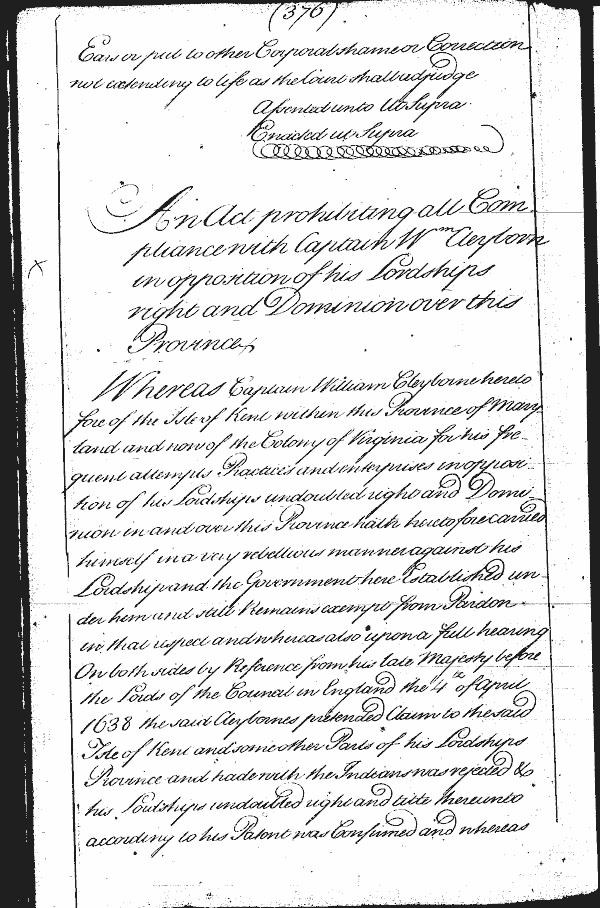 (376)
Ears or put to other Corporal shame or Correction
not extending to life as the Court shall adjudge
Assented unto Ut Supra
Enacted ut Supra
An Act prohibiting all Com
pliance with Captain Wm Cleyborn
in opposition of his Lordships
right and Dominion over this
Province
Whereas Captain William Cleyborne hereto
fore of the Isle of Kent within this Province of Mary
land and now of the Colony of Virginia for his fre-
quent attempts Practices and enterprises in opposi-
tion of his Lordships undoubted right and Domi-
nion in and over this Province hath heretofore carried
himself in a very rebellious manner against his
Lordship and the Government here Established un-
der him and still Remains exempt from Pardon
in that respect and whereas also upon a full hearing
On both sides by Reference from his late Majesty before
the Lords of the Council in England the 4th of April
1638 the said Cleybornes pretended Claim to the said
Isle of Kent and some other Parts of his Lordships
Province and trade with the Indians was rejected &
his Lordships undoubted right and title thereunto
according to his Patent was Confirmed and whereas